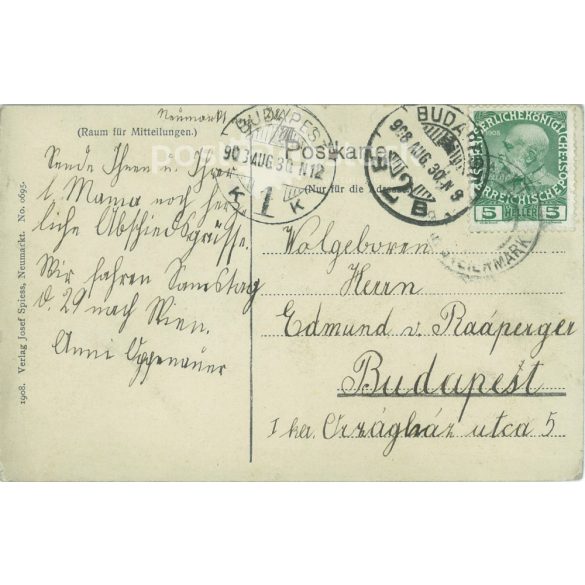 Neumarkt
(Raum für Mitteilungen.)
Postkarte.
(Nur für die Adresse.)
Sende Ihnen u. Ihrer
l. Mama noch herz
liche Abschiedsgrüsse.
Wir fahren Samstag
d. 29 nach Wien.
Anni Oggenauer
1908. Verlag Josef Spiess, Neumarkt. No. 0695.
BUDAPEST
908 AUG 30 N12
K 1 K
BUDAPEST
908 AUG 30 N 8
72
B
KAISERLICHE KÖNIGLICHE
ÖSTERREICHISCHE POST
1908
5 HELLER 5
STEIERMARK
Wolgeboren
Herrn
Edmund v. Raáperger
Budapest
I ker. Országház utca 5